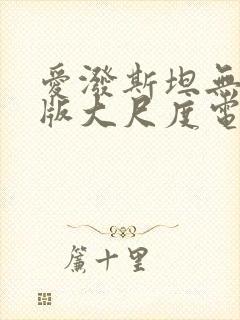 愛潑斯坦無
版大尺度電
簾十里